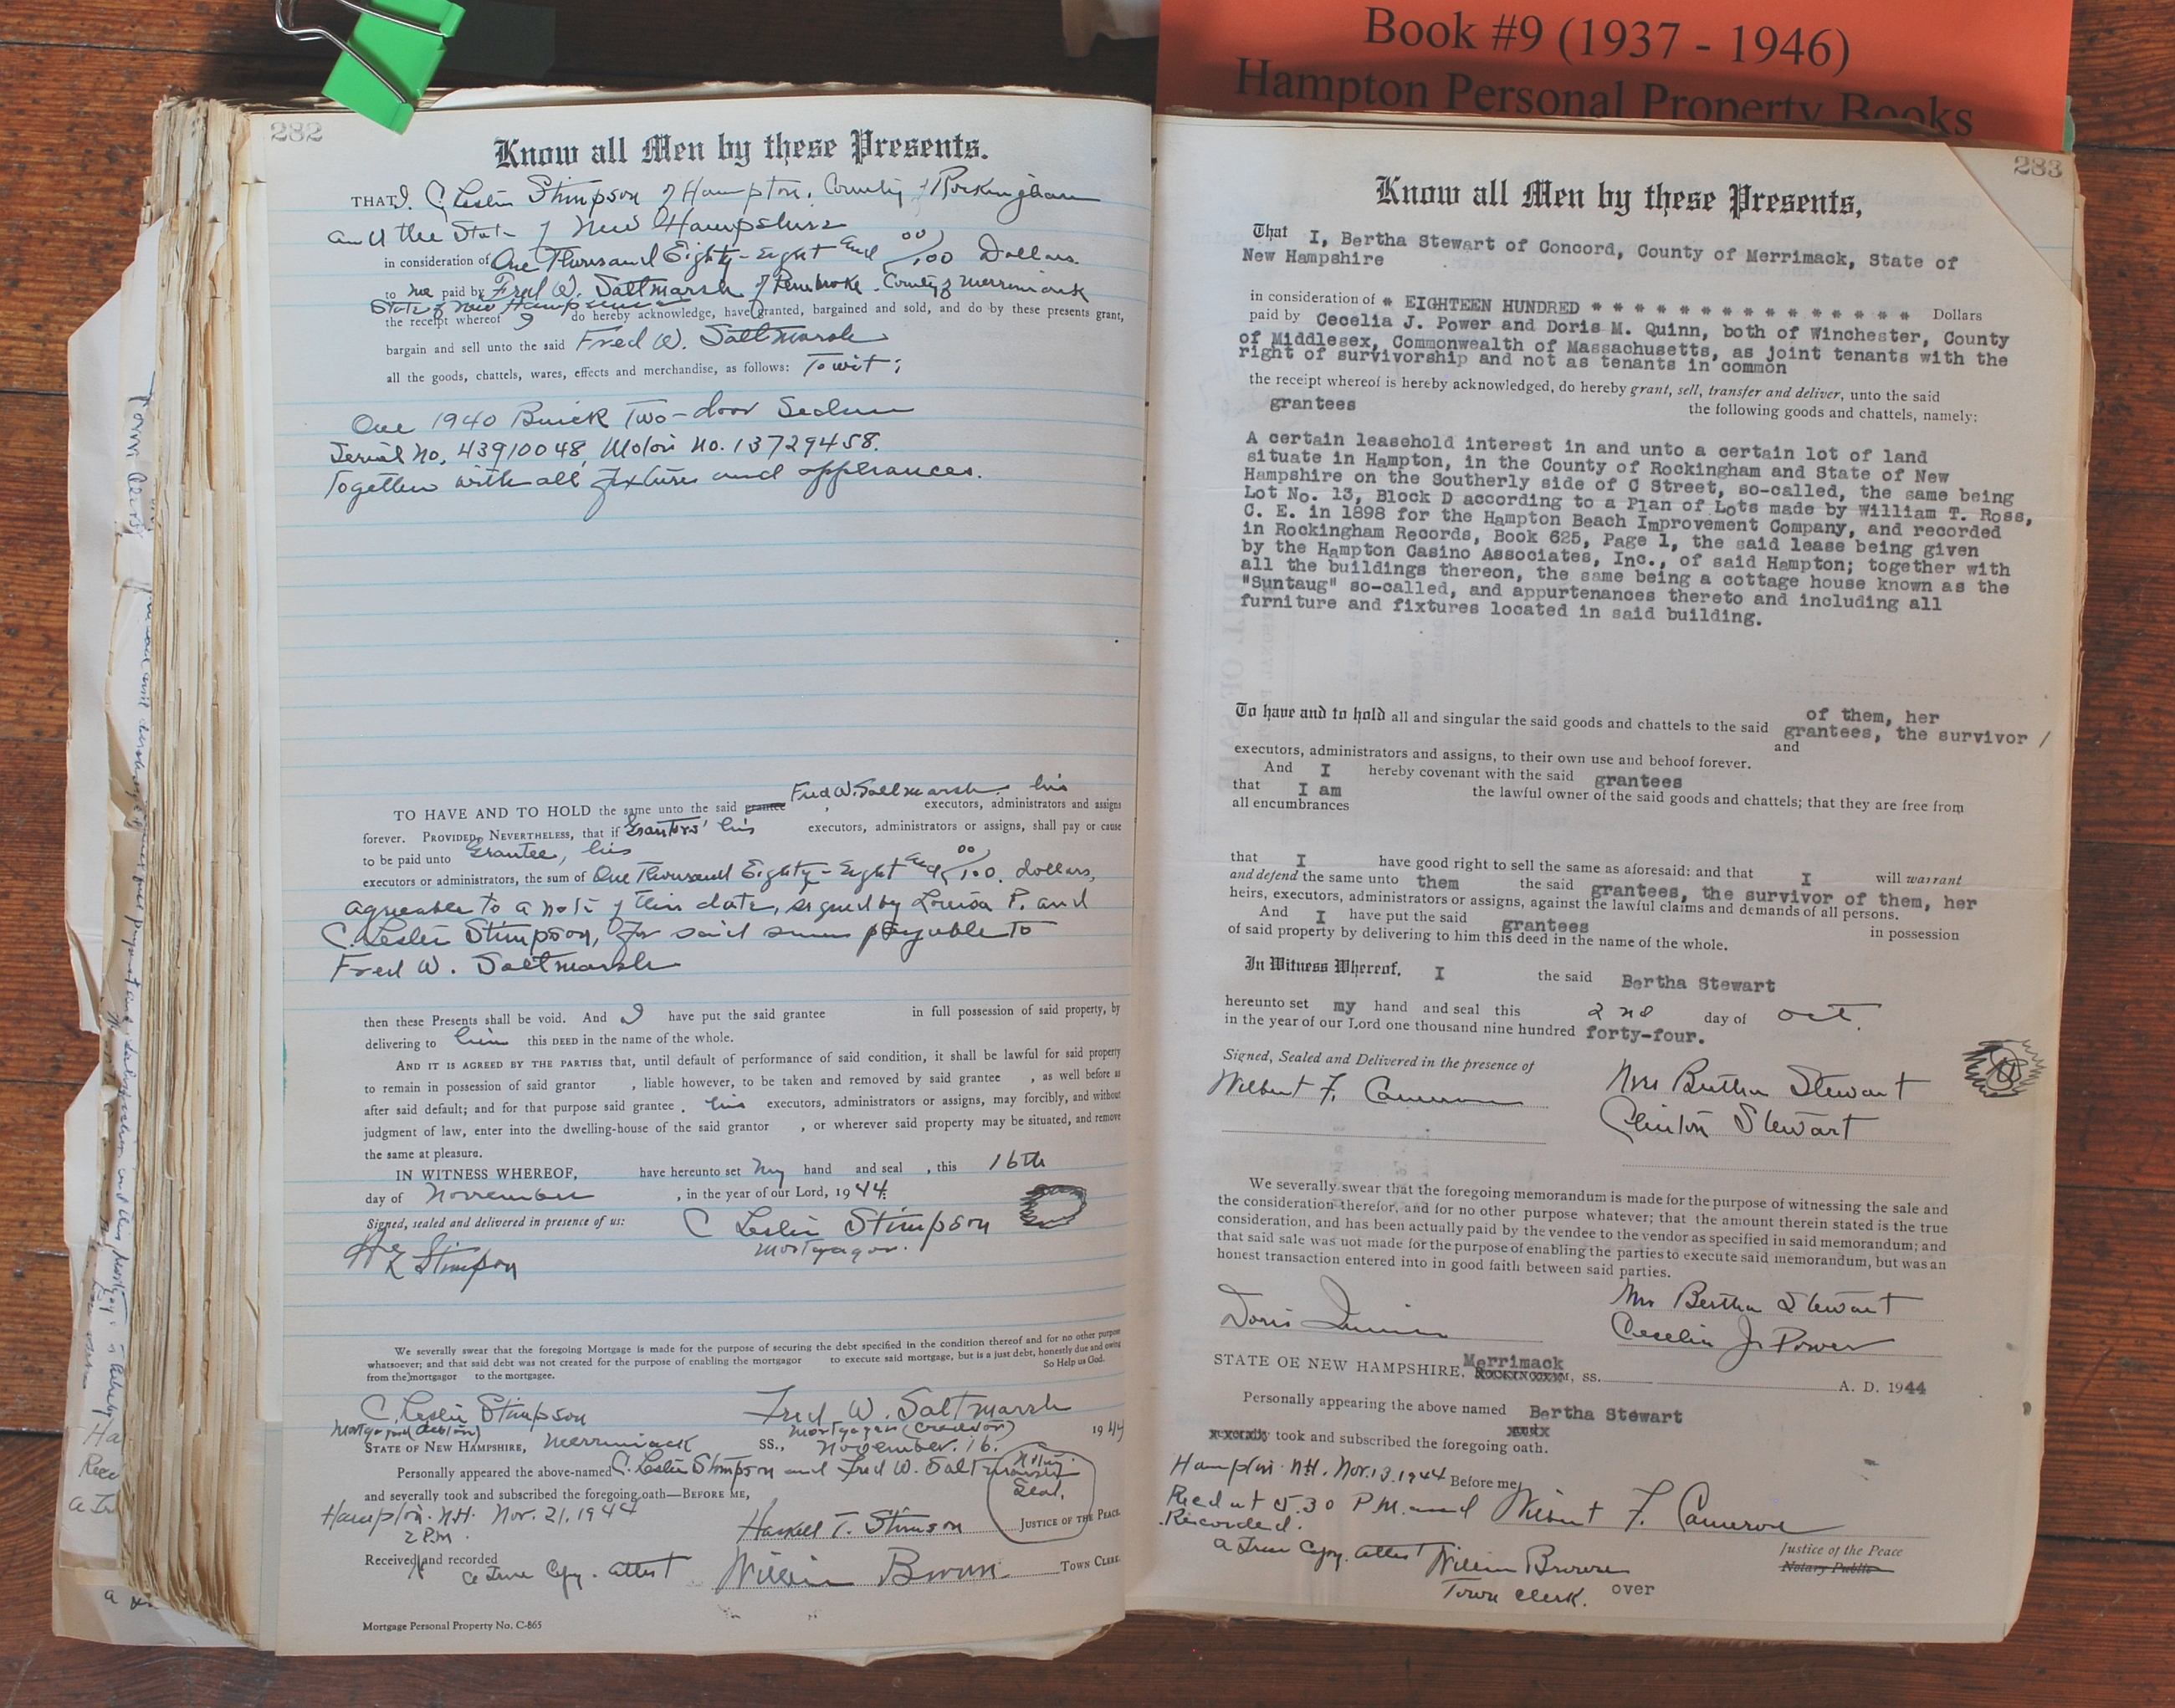 Book #9 (1937 - 1946)
Hampton Personal Property Books
282
Know all Men by these Presents.
THAT I, C. Leslie Stimpson of Hampton, County of Rockingham
and the State of New Hampshire
in consideration of One Thousand Eighty-Eight and 00/100 Dollars
to me paid by Fred W. Saltmarsh of Pembroke. County of Merrimack
State of New Hampshire
the receipt whereof I do hereby acknowledge, have granted, bargained and sold, and do by these presents grant,
bargain and sell unto the said Fred W. Saltmarsh
all the goods, chattels, wares, effects and merchandise, as follows: To wit;
One 1940 Buick Two-door Sedan
Serial No, 43910048, Motor No. 13729458.
Together with all fixtures and appliances.
TO HAVE AND TO HOLD the same unto the said grantee Fred W. Saltmarsh his executors, administrators and assigns
forever. PROVIDED, NEVERTHELESS, that if Grantors' his executors, administrators or assigns, shall pay or cause
to be paid unto Grantee, his
executors or administrators, the sum of One Thousand Eighty-Eight and 00/100. dollars,
agreeable to a note of this date, signed by Louisa P. and
C. Leslie Stimpson, for said sum payable to
Fred W. Saltmarsh
then these Presents shall be void. And I have put the said grantee in full possession of said property, by
delivering to him this DEED in the name of the whole.
AND IT IS AGREED BY THE PARTIES that, until default of performance of said condition, it shall be lawful for said property
to remain in possession of said grantor , liable however, to be taken and removed by said grantee , as well before as
after said default; and for that purpose said grantee , his executors, administrators or assigns, may forcibly, and without
judgment of law, enter into the dwelling-house of the said grantor , or wherever said property may be situated, and remove
the same at pleasure.
IN WITNESS WHEREOF, have hereunto set my hand and seal , this 16th
day of November , in the year of our Lord, 1944.
Signed, sealed and delivered in presence of us:
C Leslie Stimpson
Mortgagor.
Stimpson
We severally swear that the foregoing Mortgage is made for the purpose of securing the debt specified in the condition thereof and for no other purpose
whatsoever; and that said debt was not created for the purpose of enabling the mortgagor to execute said mortgage, but is a just debt, honestly due and owing
from the mortgagor to the mortgagee. So Help us God.
C. Leslie Stimpson Fred W. Saltmarsh
Mortgagor (debtor) Mortgagee (Creditor)
STATE OF NEW HAMPSHIRE, Merrimack SS., November. 16. 1944
Personally appeared the above-named C. Leslie Stimpson and Fred W. Saltmarsh
and severally took and subscribed the foregoing oath—BEFORE ME,
Notary Seal,
Hampton. N.H. Nov. 21. 1944
2 P.M.
Haskell T. Stimson JUSTICE OF THE PEACE
Received and recorded
a True Copy. attest William Brown. TOWN CLERK.
Mortgage Personal Property No. C-865
283
Know all Men by these Presents,
That I, Bertha Stewart of Concord, County of Merrimack, State of
New Hampshire
in consideration of * EIGHTEEN HUNDRED * * * * * * * * * * * * * * * Dollars
paid by Cecelia J. Power and Doris M. Quinn, both of Winchester, County
of Middlesex, Commonwealth of Massachusetts, as joint tenants with the
right of survivorship and not as tenants in common
the receipt whereof is hereby acknowledged, do hereby grant, sell, transfer and deliver, unto the said
grantees the following goods and chattels, namely:
A certain leasehold interest in and unto a certain lot of land
situate in Hampton, in the County of Rockingham and State of New
Hampshire on the Southerly side of C Street, so-called, the same being
Lot No. 13, Block D according to a Plan of Lots made by William T. Ross,
C. E. in 1898 for the Hampton Beach Improvement Company, and recorded
in Rockingham Records, Book 625, Page 1, the said lease being given
by the Hampton Casino Associates, Inc., of said Hampton; together with
all the buildings thereon, the same being a cottage house known as the
"Suntaug" so-called, and appurtenances thereto and including all
furniture and fixtures located in said building.
of them, her
To have and to hold all and singular the said goods and chattels to the said grantees, the survivor /
and
executors, administrators and assigns, to their own use and behoof forever.
And I hereby covenant with the said grantees
that I am the lawful owner of the said goods and chattels; that they are free from
all encumbrances
that I have good right to sell the same as aforesaid: and that I will warrant
and defend the same unto them the said grantees, the survivor of them, her
heirs, executors, administrators or assigns, against the lawful claims and demands of all persons.
And I have put the said grantees in possession
of said property by delivering to him this deed in the name of the whole.
In Witness Whereof, I the said Bertha Stewart
hereunto set my hand and seal this 2nd day of Oct.
in the year of our Lord one thousand nine hundred forty-four.
Signed, Sealed and Delivered in the presence of
Wilbert F. Cameron Mrs Bertha Stewart
Clinton Stewart
We severally swear that the foregoing memorandum is made for the purpose of witnessing the sale and
the consideration therefor, and for no other purpose whatever; that the amount therein stated is the true
consideration, and has been actually paid by the vendee to the vendor as specified in said memorandum; and
that said sale was not made for the purpose of enabling the parties to execute said memorandum, but was an
honest transaction entered into in good faith between said parties.
Doris Quinn Mrs Bertha Stewart
Cecelia J. Power
STATE OF NEW HAMPSHIRE, Merrimack ROCKINGHAM, ss. A. D. 1944
Personally appearing the above named Bertha Stewart
took and subscribed the foregoing oath.
Hampton N.H. Nov. 13. 1944 Before me,
Recd at 5.30 P.M. and Wilbert F. Cameron
Recorded.
a True Copy. attest William Brown Justice of the Peace
Notary Public
Town Clerk. over